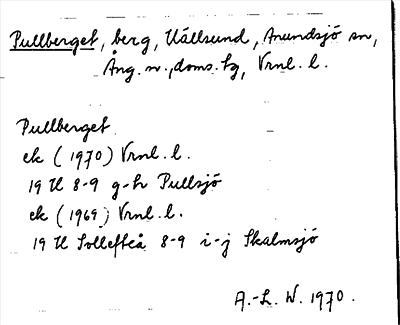 Pullberget, berg, Källsund, Anundsjö sn,
Ång. n., doms. tg, Vrnl. l.
Pullberget
ek (1970) Vrnl. l.
19 H 8-9 g-h Pullsjö
ek (1969) Vrnl. l.
19 H Sollefteå 8-9 i-j Skalmsjö
A.-L. W. 1970.